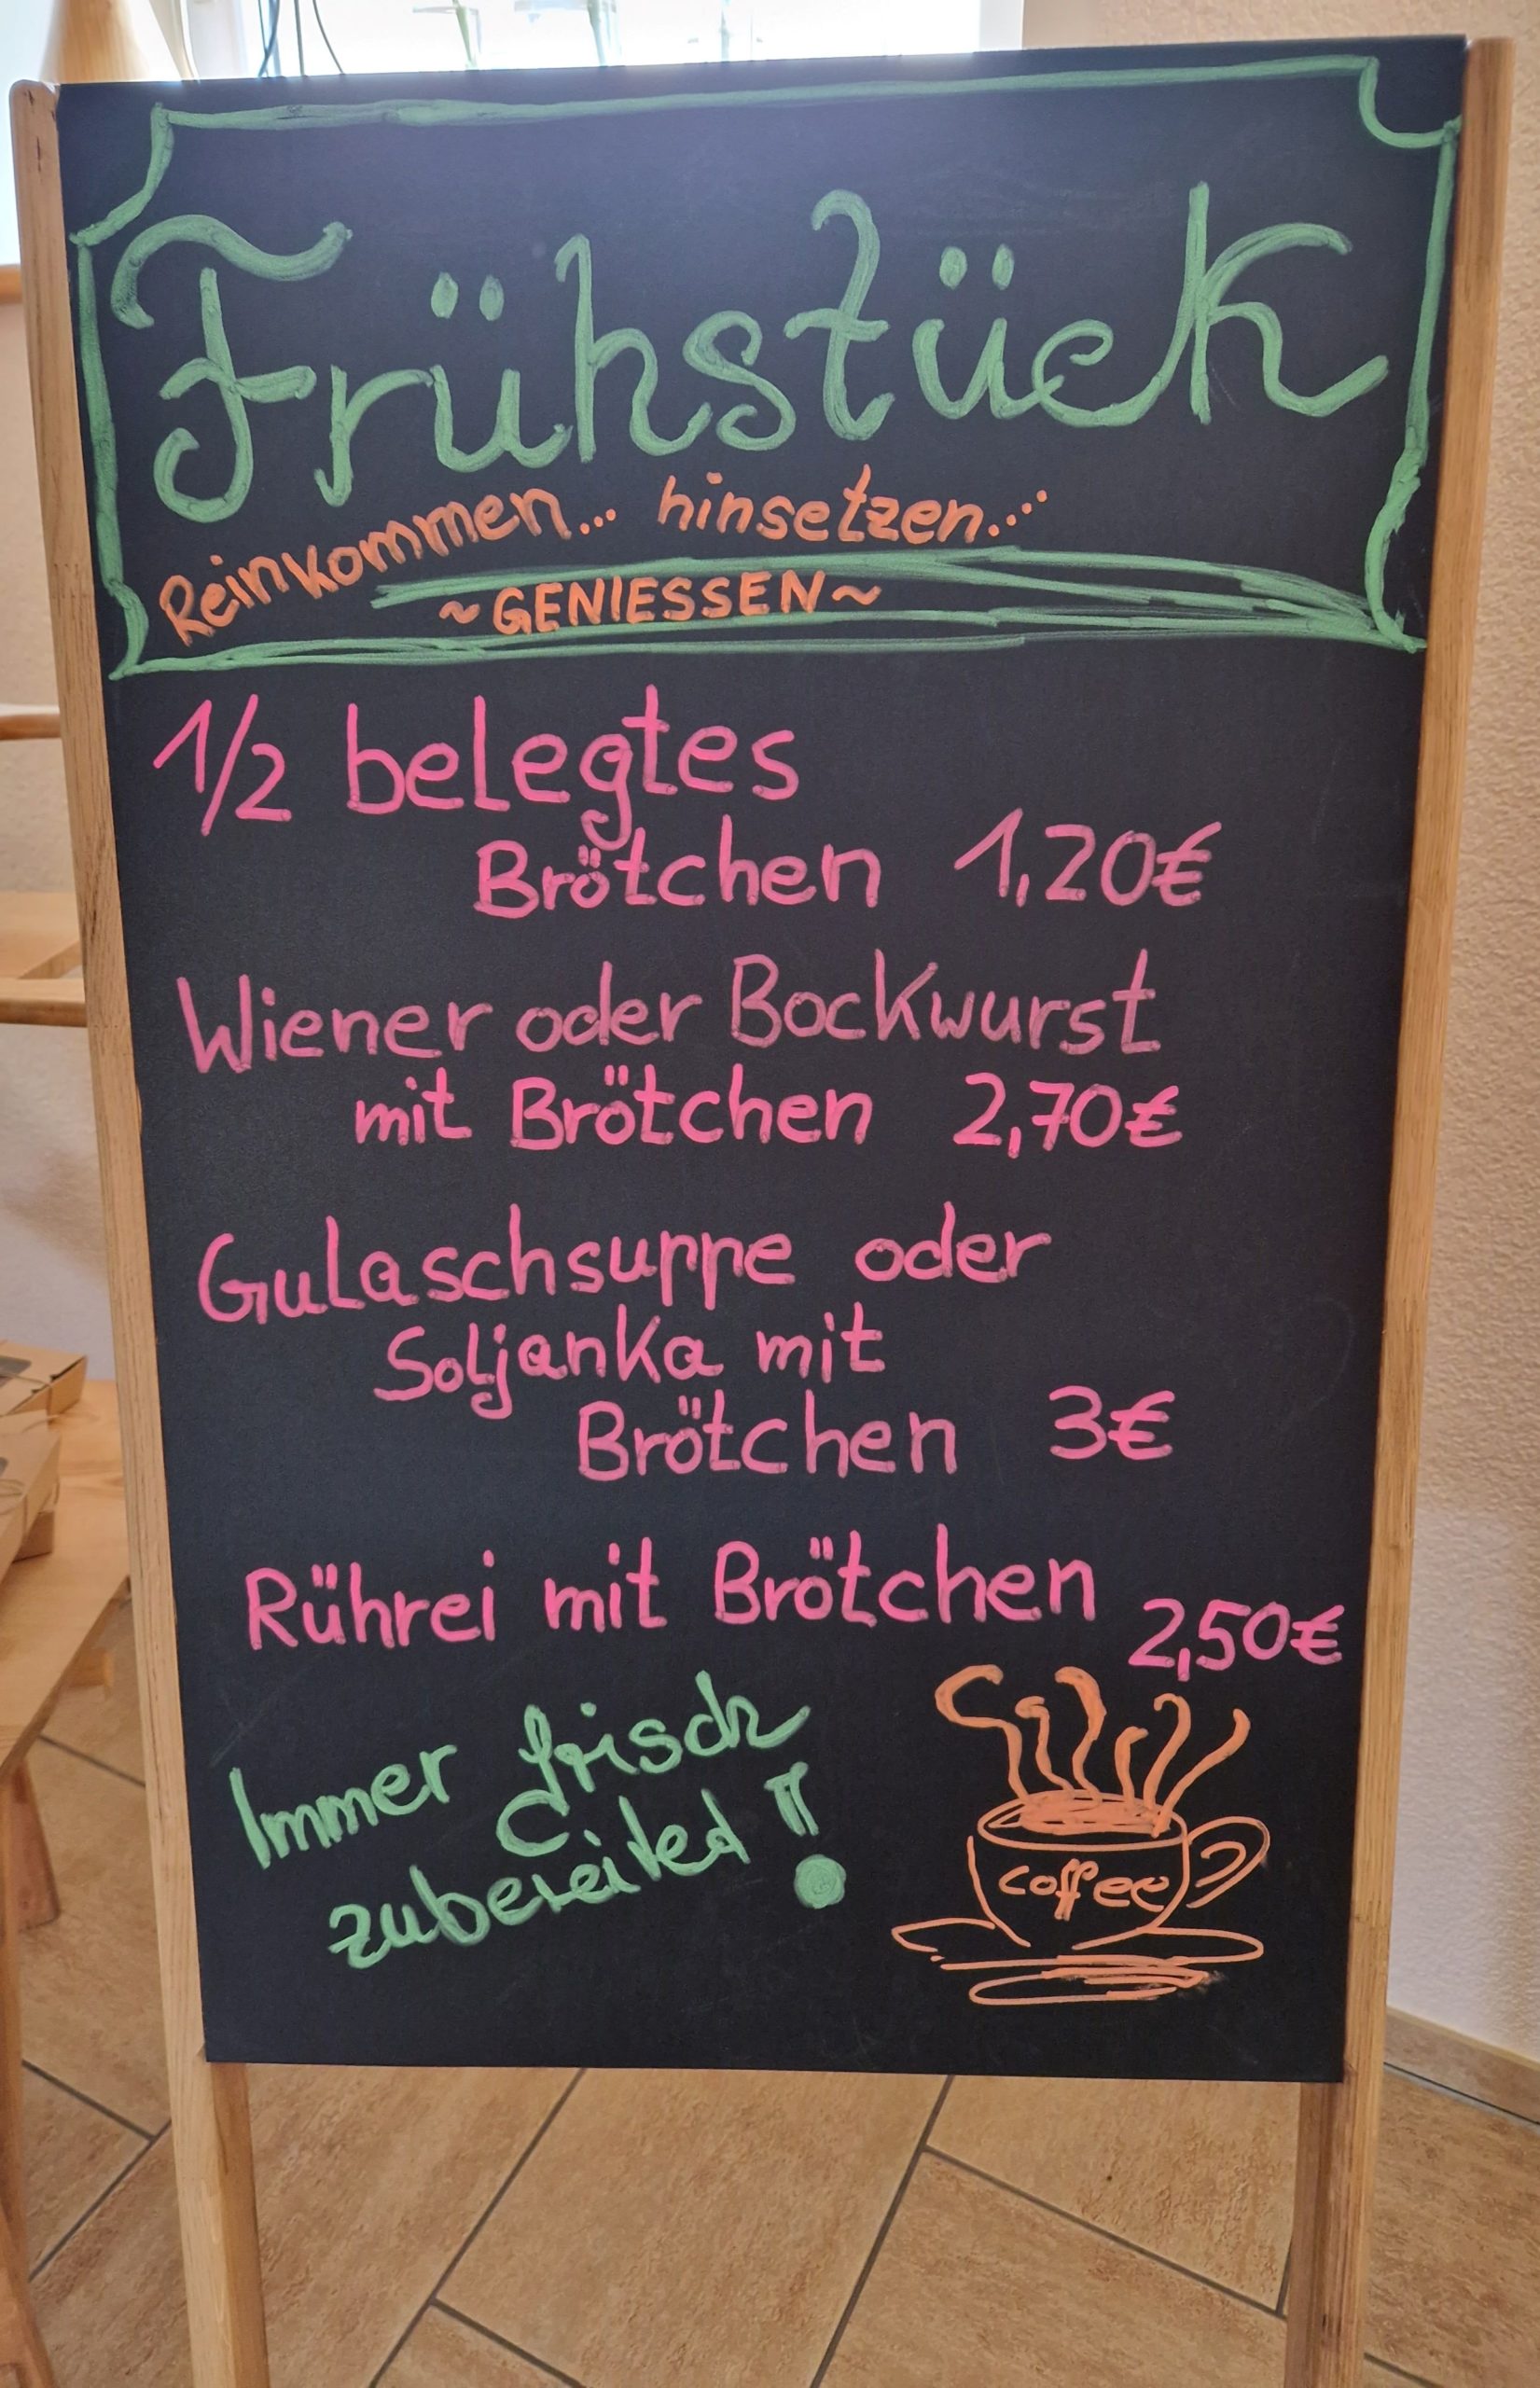 Frühstück
Reinkommen... hinsetzen...
~GENIESSEN~
1/2 belegtes
Brötchen 1,20€
Wiener oder Bockwurst
mit Brötchen 2,70€
Gulaschsuppe oder
Soljanka mit
Brötchen 3€
Rührei mit Brötchen 2,50€
Immer frisch
zubereited!
coffee